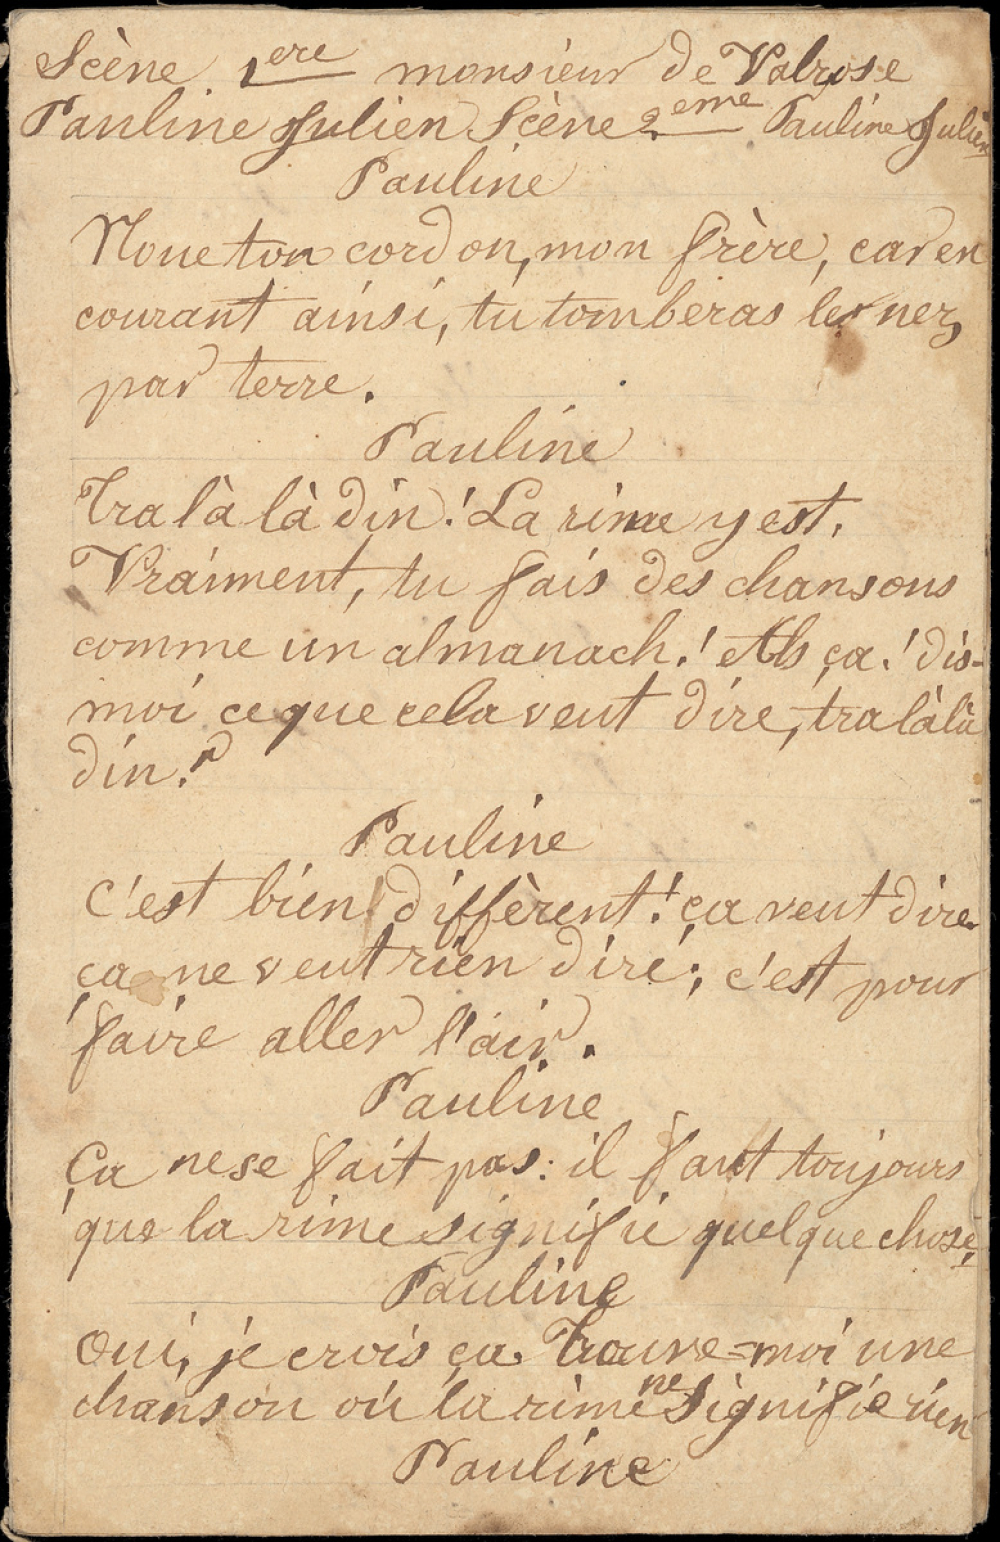 Scène 1ere monsieur de Valrose
Pauline Julien Scène 2eme Pauline Julien
Pauline
Noue ton cordon, mon frère, car en
courant ainsi, tu tomberas le nez
par terre.
Pauline
Tra là là din! La rime y est.
Vraiment, tu fais des chansons
comme un almanach! Ah ça! dis-
moi ce que cela veut dire, tra là là
din?
Pauline
C'est bien différent! ça veut dire
ça ne veut rien dire; c'est pour
faire aller l'air.
Pauline
Ça ne se fait pas: il faut toujours
que la rime signifie quelque chose.
Pauline
Oui, je crois ça. Trouve-moi une
chanson où la rime ne signifie rien
Pauline